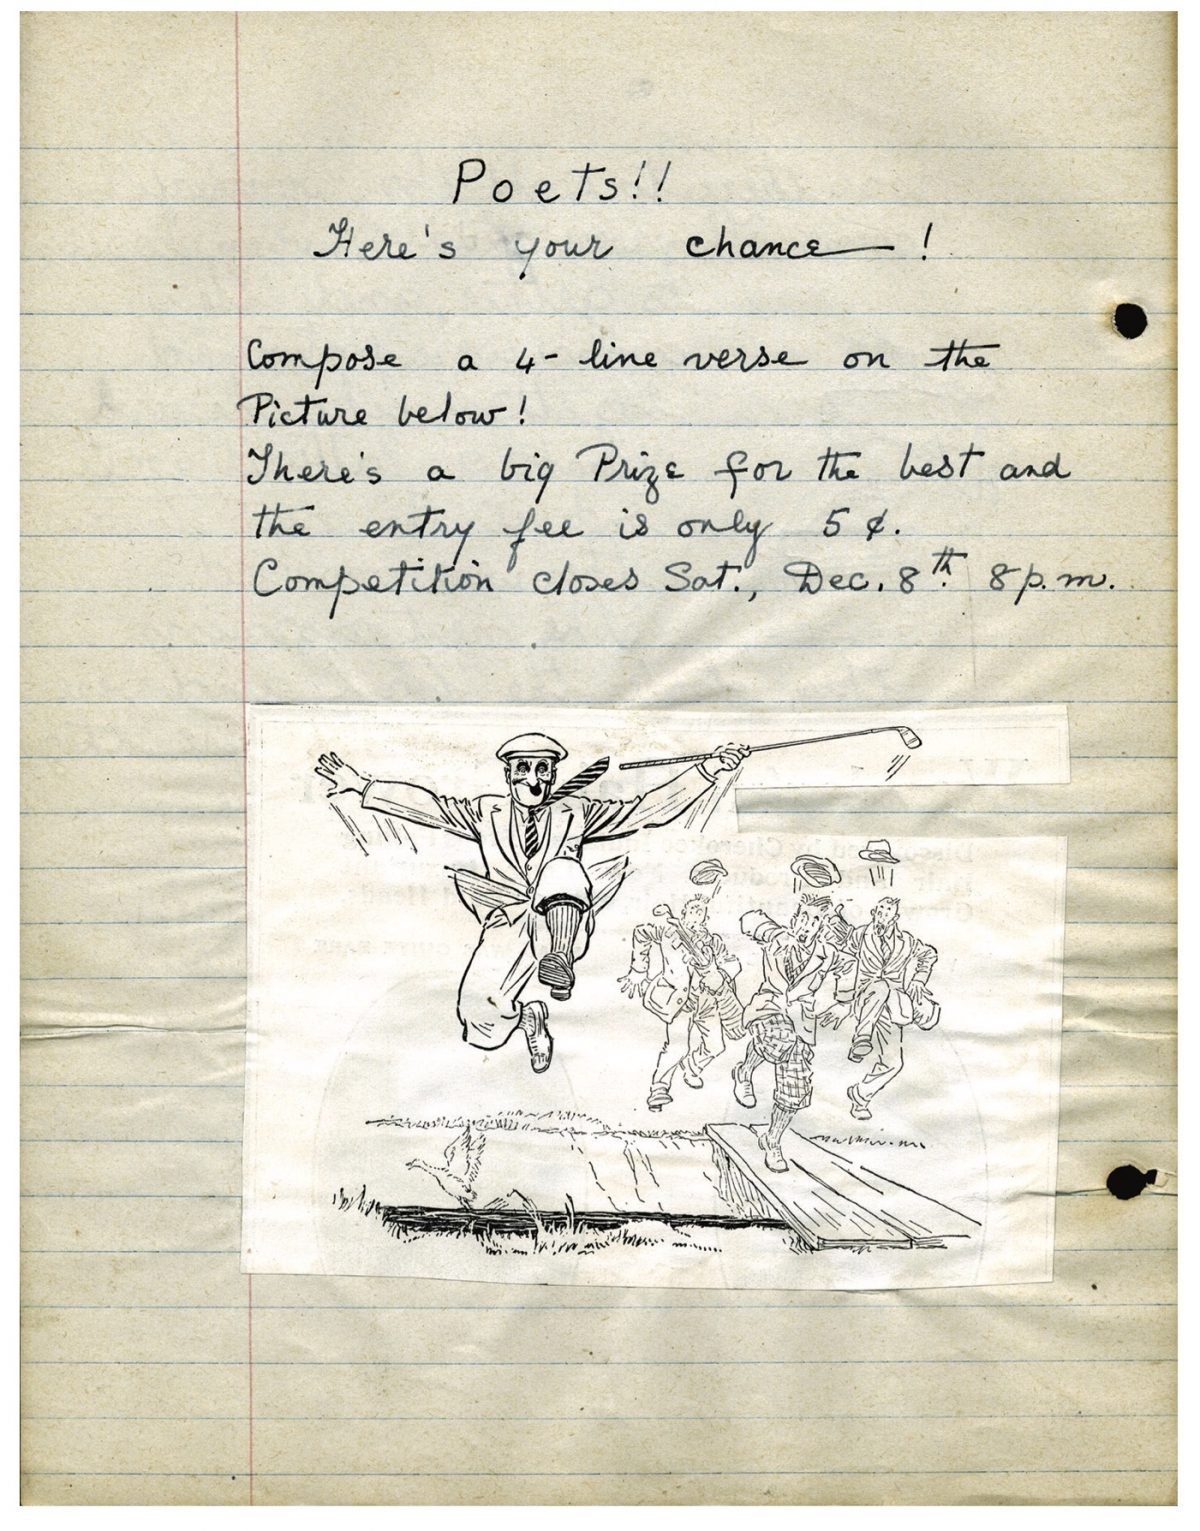 Poets!!
Here's your chance — !
Compose a 4- line verse on the
Picture below!
There's a big Prize for the best and
the entry fee is only 5 ¢.
Competition closes Sat., Dec. 8th. 8 p.m.